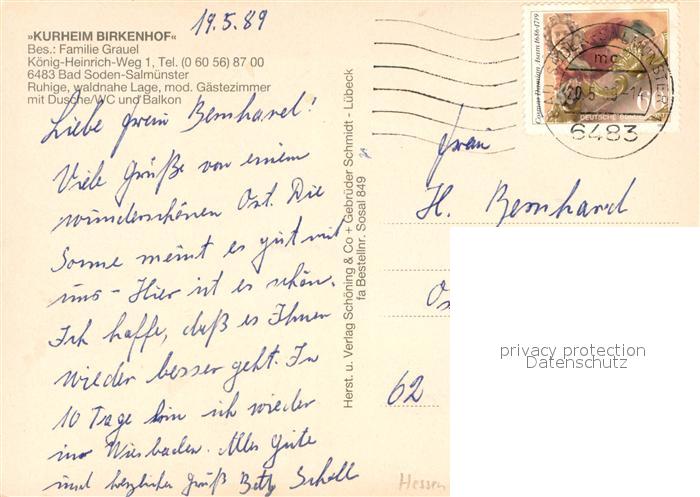 19.5.89
»KURHEIM BIRKENHOF«
Bes.: Familie Grauel
König-Heinrich-Weg 1, Tel. (0 60 56) 87 00
6483 Bad Soden-Salmünster
Ruhige, waldnahe Lage, mod. Gästezimmer
mit Dusche/WC und Balkon
Liebe Frau Bernhard!
Viele Grüße von einem
wunderschönen Ort. Die
Sonne meint es gut mit
uns - Hier ist es schön.
Ich hoffe, daß es Ihnen
wieder besser geht. In
10 Tage bin ich wieder
in Wiesbaden. Alles Gute
und herzlichen Gruß Betty Scholl
Herst. u. Verlag Schöning & Co + Gebrüder Schmidt - Lübeck
fa Bestellnr. Sosal 849
Cosmas Damian Asam 1686-1739
60
DEUTSCHE BUNDESPOST
BAD SODEN-SALMÜNSTER
mc
20.5.
6483
Frau
H. Bernhard
62
Hessen
privacy protection
Datenschutz